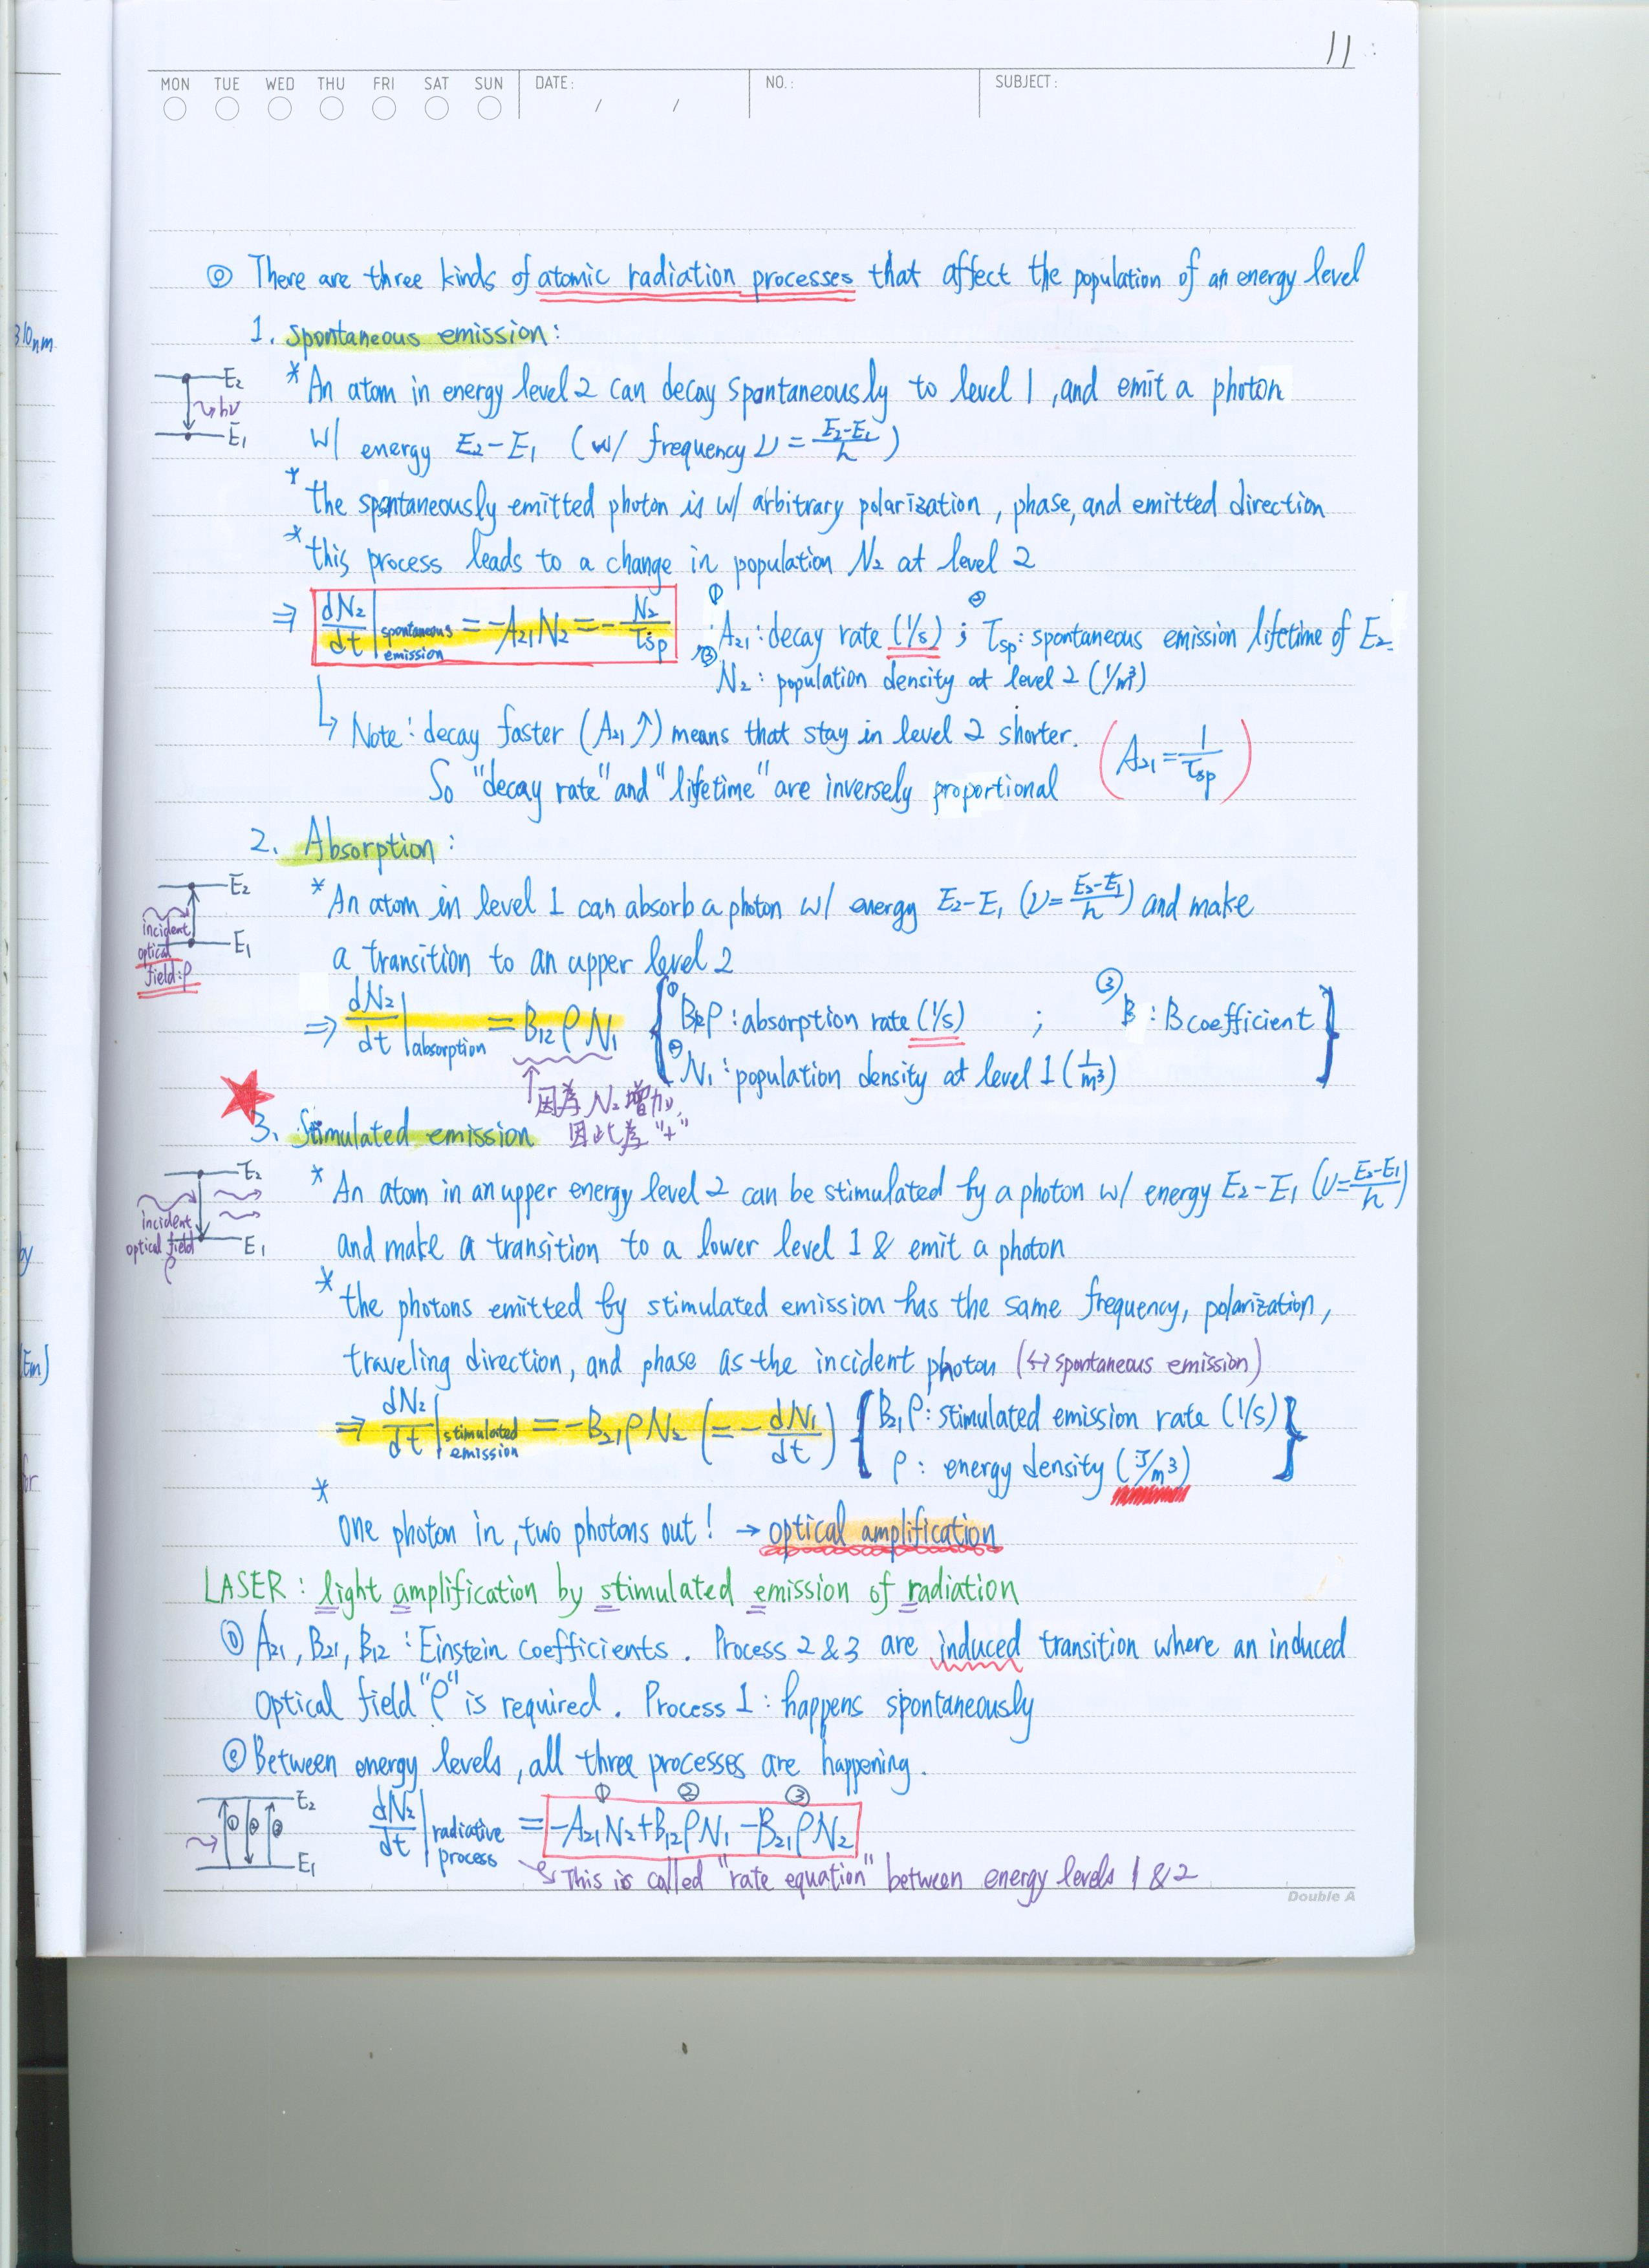 11
MON TUE WED THU FRI SAT SUN DATE: / / NO.: SUBJECT:
◎ There are three kinds of atomic radiation processes that affect the population of an energy level
310nm
1. Spontaneous emission:
E2
hν
E1
* An atom in energy level 2 can decay spontaneously to level 1, and emit a photon
w/ energy E2-E1 (w/ frequency ν = (E2-E1)/h)
* the spontaneously emitted photon is w/ arbitrary polarization, phase, and emitted direction
* this process leads to a change in population N2 at level 2
⇒ dN2/dt | spontaneous emission = -A21 N2 = - N2/τsp ① A21: decay rate (1/s) ; ② τsp: spontaneous emission lifetime of E2.
③ N2: population density at level 2 (1/m³)
↳ Note: decay faster (A21 ↑) means that stay in level 2 shorter. (A21 = 1/τsp)
So "decay rate" and "lifetime" are inversely proportional
2. Absorption:
E2
incident
optical
field: ρ
E1
* An atom in level 1 can absorb a photon w/ energy E2-E1 (ν = (E2-E1)/h) and make
a transition to an upper level 2
⇒ dN2/dt | absorption = B12 ρ N1 { ① B12ρ: absorption rate (1/s) ; ③ B: B coefficient }
② N1: population density at level 1 (1/m³)
↑ 因為 N2 增加,
因此為 "+"
3. Stimulated emission
E2
incident
optical field
ρ
E1
* An atom in an upper energy level 2 can be stimulated by a photon w/ energy E2-E1 (ν = (E2-E1)/h)
and make a transition to a lower level 1 & emit a photon
* the photons emitted by stimulated emission has the same frequency, polarization,
traveling direction, and phase as the incident photon (↔ spontaneous emission)
⇒ dN2/dt | stimulated emission = -B21 ρ N2 (= - dN1/dt) { B21ρ: stimulated emission rate (1/s) }
ρ: energy density (J/m³)
* One photon in, two photons out! → optical amplification
LASER: light amplification by stimulated emission of radiation
① A21, B21, B12: Einstein coefficients. Process 2 & 3 are induced transition where an induced
Optical field "ρ" is required. Process 1: happens spontaneously
② Between energy levels, all three processes are happening.
E2
① ② ③
E1
① ② ③
dN2/dt | radiative process = -A21 N2 + B12 ρ N1 - B21 ρ N2
This is called "rate equation" between energy levels 1 & 2
by
(Em)
Double A